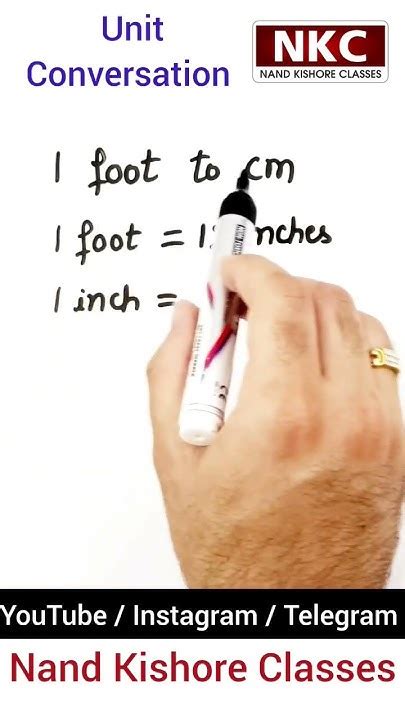 Unit
Conversation
NKC
NAND KISHORE CLASSES
1 foot to cm
1 foot = 1 nches
1 inch =
YouTube / Instagram / Telegram
Nand Kishore Classes